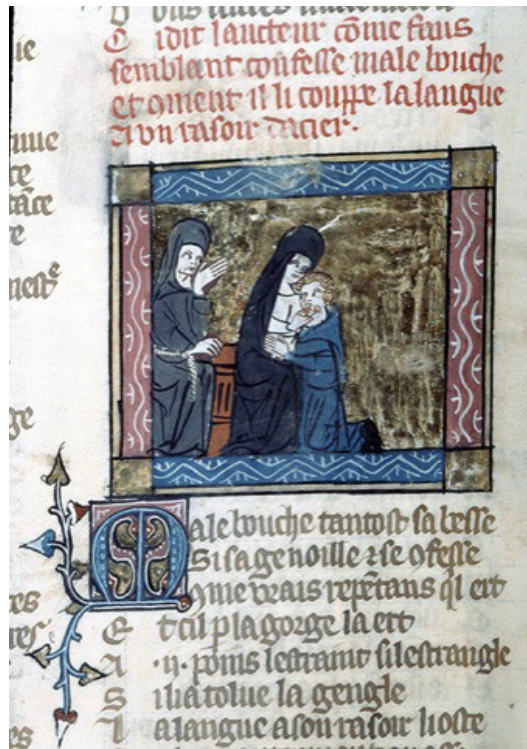 C i dit laucteur cõme faus
semblant cõfesse male bouche
et ꝯment il li couppe la langue
dun rasoir dacier.
Male bouche tantost sabesse
Si sagenoille ⁊ se ꝯfesse
ꝯme vrais repẽtans ql ert
E t cil p la gorge la ert
A .ii. poins lestraint si lestrangle
S i li a tolue la gengle
L a langue a son rasoir li oste